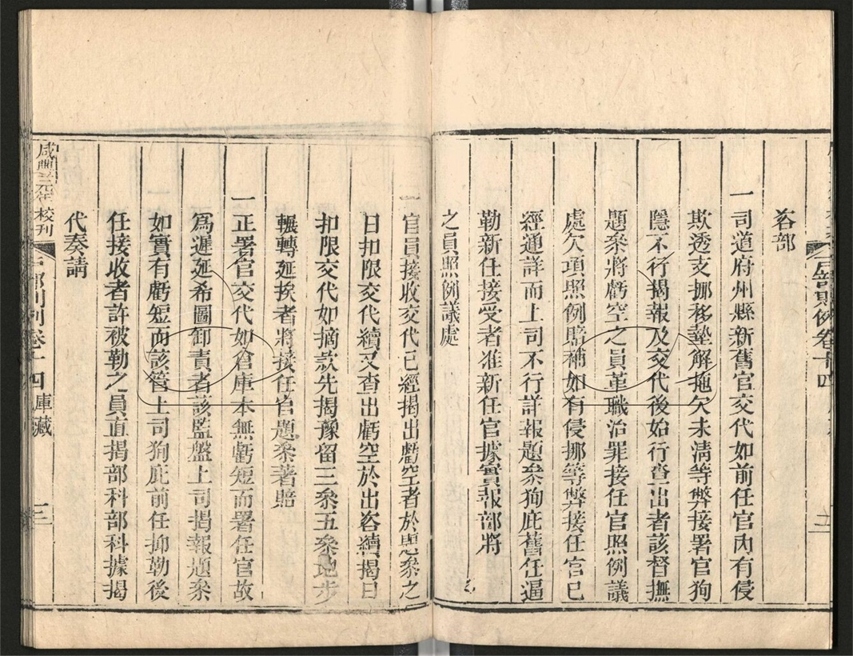 咨部
一司道府州縣新舊官交代如前任官內有侵
欺透支挪移墊解拖欠未清等弊接署官狥
隱不行揭報及交代後始行查出者該督撫
題叅將虧空之員革職治罪接任官照例議
處欠項照例賠補如有侵挪等弊接任官已
經通詳而上司不行詳報題叅狥庇舊任逼
勒新任接受者准新任官據實報部將
之員照例議處
一官員接收交代已經揭出虧空者於題叅之
日扣限交代續又查出虧空於出咨續揭日
扣限交代如摘款先揭豫留三叅五叅地步
輾轉延挨者將接任官題叅著賠
一正署官交代如倉庫本無虧短而署任官故
爲遲延希圖卸責者該監盤上司揭報題叅
如實有虧短而該管上司狥庇前任抑勒後
任接收者許被勒之員直揭部科部科據揭
代奏請
咸豐元年校刊
戶部則例卷十四 庫藏